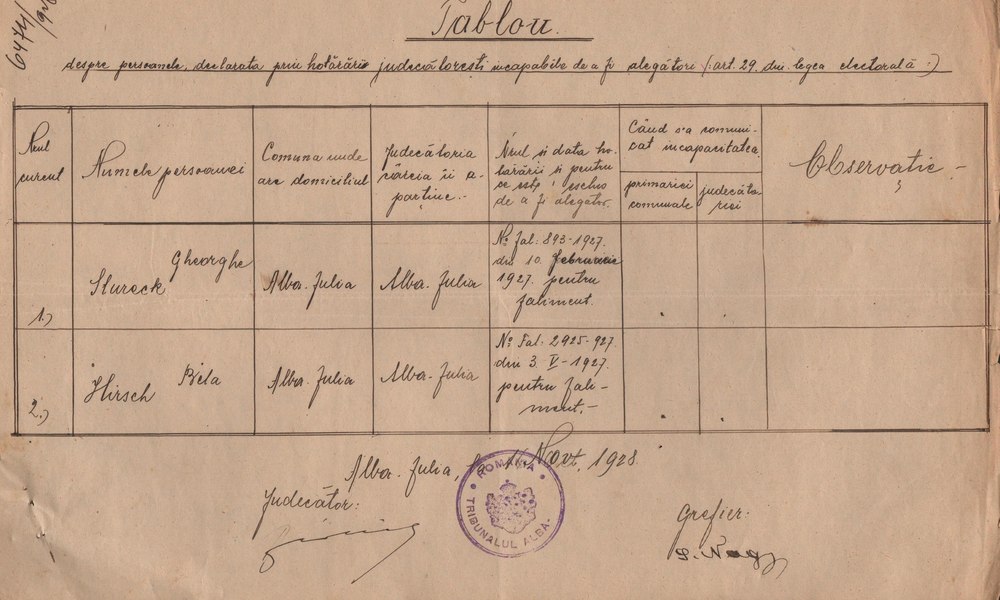 6474/928
Tablou.
despre persoanele, declarata prin hotărârie judecătorești incapabile de a fi alegători (: art. 29. din legea electorală :)
Nrul
curent
Numele persoanei
Comuna unde
are domiciliul
Judecătoria
căreia îi a-
parține.-
Nrul și data ho-
tărârii și pentru
ce este eschis
de a fi alegător.
Când s-a comuni-
cat incapacitatea
primăriei
comunale
judecăto
riei
Observație -
1.)
Gheorghe
Stureck
Alba-Julia
Alba-Julia
No Fal: 893-1927.
din 10. februarie
1927. pentru
faliment.
2.)
Béla
Hirsch
Alba-Julia
Alba-Julia
No Fal: 2925-927.
din 3. V-1927.
pentru fali-
ment.-
Alba-Julia, Novt. 1928
Judecător:
ROMANIA
TRIBUNALUL ALBA
Grefier:
S. Nagy